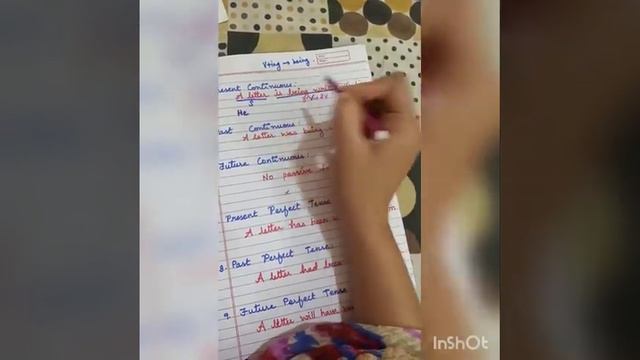 V+ing → being.
Present Continuous:
A letter is being
S
He
Past Continuous:
A letter was being
Future Continuous:
No passive
Present Perfect Tense
A letter has been
8. Past Perfect Tense.
A letter had been
9. Future Perfect Tense
A letter will have
InShOt